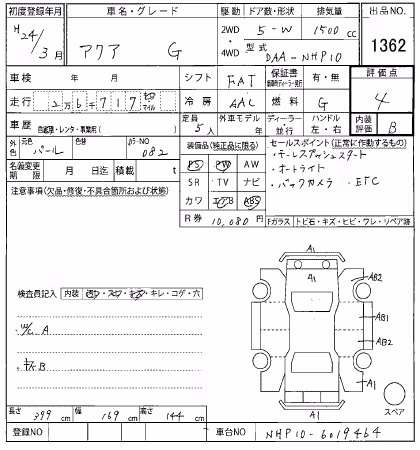 初度登録年月 車名・グレード 駆動 ドア数・形状 排気量 出品NO
H24/3月 アクア G 2WD 4WD 5-W 1500cc 1362
型式 DAA-NHP10
車検 年 月 シフト FAT 保証書 有・無 評価点
走行 2万6千717 km マイル 冷房 AAC 燃料 G 4
車歴 自家用・レンタ・事業用( ) 定員 5人 外車モデル 年 ディーラー 並行 ハンドル 左・右 内装評価 B
外色 元色 パール 色替 カラーNO 082
装備品(純正品に限る) PS PW AW
SR TV ナビ
カワ エアB ABS
セールスポイント(正常に作動するもの)
・キーレスプッシュスタート
・オートライト
・バックカメラ ・ETC
名義変更期限 月 日迄 積載 t
注意事項(欠品・修復・不具合箇所および状態)
R券 10,080円 Fガラス トビ石・キズ・ヒビ・ワレ・リペア跡
検査員記入 内装 キレ・コゲ・穴
・W/C A
B
A1
A1
AB2
AB1
AB2
A1
A1
スペア
長さ 399 cm 幅 169 cm 高さ 144 cm
登録NO 車台NO NHP10-6019464